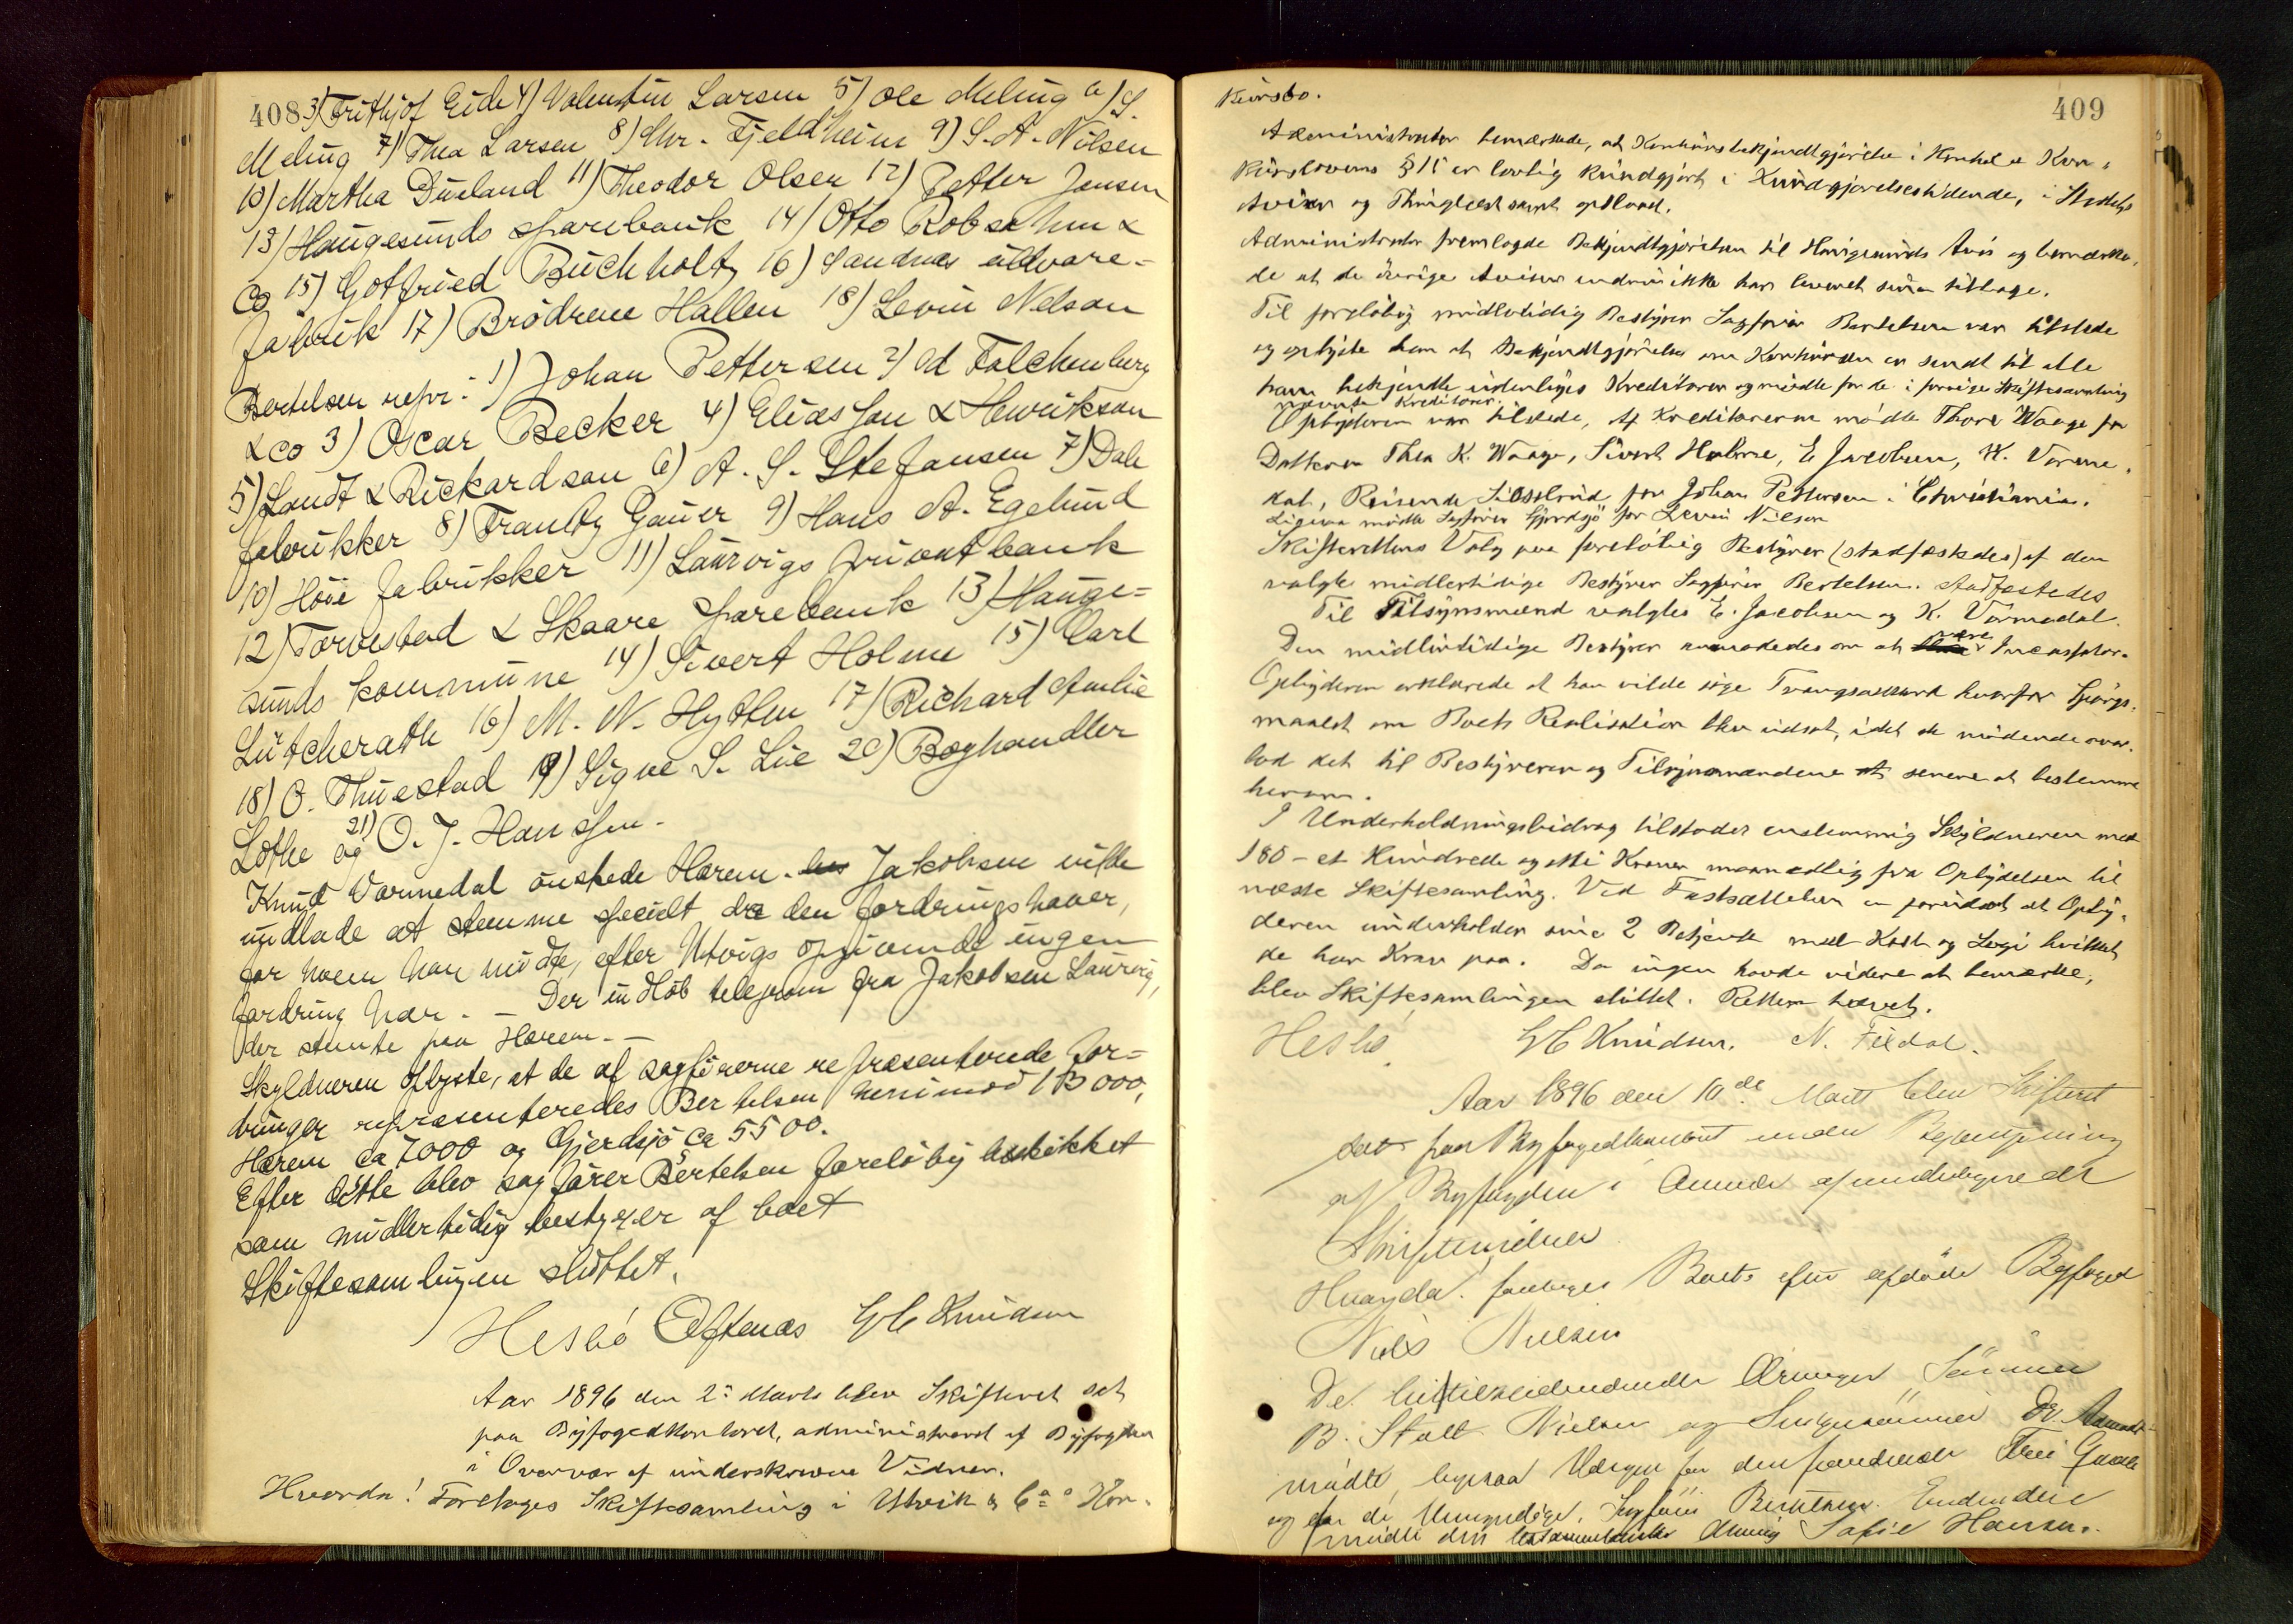 408 3) Frithjof Eide 4) Valentin Larsen 5) Ole Meling 6) S.
Meling 7) Thea Larsen 8) Chr. Fjeldheim 9) S. A. Nilsen
10) Martha Dueland 11) Theodor Olsen 12) Petter Jensen
13) Haugesunds sparebank 14) Otto Robsahm &
Co 15) Gotfried Buchholtz 16) Sandnes uldvare-
fabrik 17) Brödrene Hallen 18) Levin Nelson
Bertelsen repr: 1) Johan Pettersen 2) Ed Falchenburg
& Co 3) Oscar Becker 4) Eliassen & Henrikson
5) Landt & Rickardson 6) A. S. Stefansen 7) Dale
fabrikker 8) Frantz Gauer 9) Hans A. Egelund
10) Höie fabrikker 11) Laurvigs privatbank
12) Torvestad & Skaare sparebank 13) Hauge-
sunds kommune 14) Sivert Holme 15) Carl
Lütcherath 16) M. N. Hytten 17) Richard Amlie
18) O. Thuestad 19) Signe S. Lie 20) Boghandler
Lothe og 21) O. J. Hansen.
Knud Varmedal önskede Harem. Jakobsen vilde
undlade at stemme specielt da den fordringshaver,
for hvem han mödte, efter Utvigs opgivende ingen
fordring har. – Der indlöb telegram fra Jakobsen Laurvig,
der stemte paa Harem. –
Skyldneren oplyste, at de af sagförerne repræsenterede for-
dringer repræsenteredes Bertelsen henimod 13000,
Harem ca 7000 og Gjerdsjö ca 5500.
Efter dette blev sagförer Bertelsen foreløbig beskikket
som midlertidig bestyrer af boet
Skiftesamlingen sluttet.
Hesbö Eftenæs G C Knudsen
Aar 1896 den 2. Marts blev Skifteret sat
paa Byfogedkontoret, administreret af Byfogden
i Overvær af underskrevne Vidner.
Hvorda! Foretoges Skiftesamling i Utvik & Co Kon-
409
kursbo.
Administrator bemærkede, at Konkursbekjendtgjørelse i Henhold til Kon-
kurslovens § 15 er lovlig kundgjort i Kundgjørelsestidende, i Stedets
Aviser og Thinglæst samt opslaaet.
Administrator fremlagde Bekjendtgjørelsen til Haugesunds Avis og bemærke-
de at de övrige Aviser endnu ikke har leveret sine tilbage.
Til foreløbig midlertidig Bestyrer Sagfører Bertelsen var tilstede
og oplyste han at Bekjendtgjørelse om Konkursen er sendt til alle
ham bekjendte udenbyes Kreditorer og mödte for de i forrige Skiftesamling
nævnte Kreditorer.
Opbyderen var tilstede, Af Kreditorerne mødte Thore Waage for
Datteren Thea K. Waage, Sivert Holme, E Jacobsen, K. Varme-
dal, Reisende for Johan Pettersen i Christiania.
Ligesaa mødte Sagfører Gjerdsjö for Levin Nilson
Skifterettens Valg paa foreløbig Bestyrer (stadfæstedes) af den
valgte midlertidige Bestyrer Sagfører Bertelsen. stadfæstedes
Til Tilsynsmænd valgtes E. Jacobsen og K. Varmedal.
Den midlertidige Bestyrer anmodedes om at være Incassator.
Opbyderen erklærede at han vilde söge Tvangsakkord hvorfor Spørgs-
maalet om Boets Realisation blev udsat, idet de mødende over-
lod det til Bestyreren og Tilsynsmændene at senere at bestemme
herom.
I Underholdningsbidrag tilstodes enstemmig Skyldneren med
180 – et Hundrede og otti Kroner maanedlig fra Opbydelsen til
næste Skiftesamling. Ved Fastsættelsen er forudsat at Opby-
deren underholder sine 2 Betjente med Kost og Logi hvilket
de har Krav paa. Da ingen havde videre at bemærke,
blev Skiftesamlingen sluttet. Retten hævet.
Hesbö G C Knudsen. N. Eidal.
Aar 1896 den 10de Marts blev Skifteret
sat paa Byfogedkontoret under Bestyrelse
af Byfogden i Overvær af undertegnede
Skiftevidner
Hvorda: foretoges Boet efter afdøde Byfoged
Niels Nielsen
De Arvinger Sönner
B. Stolt Nielsen og Svigersönner Dr.
mödte, ligesaa Værgen for den Frue
og for de Umyndige, Sagfører Bertelsen. Endvidere
mödte den testamentariske Arving Sofie Hansen.